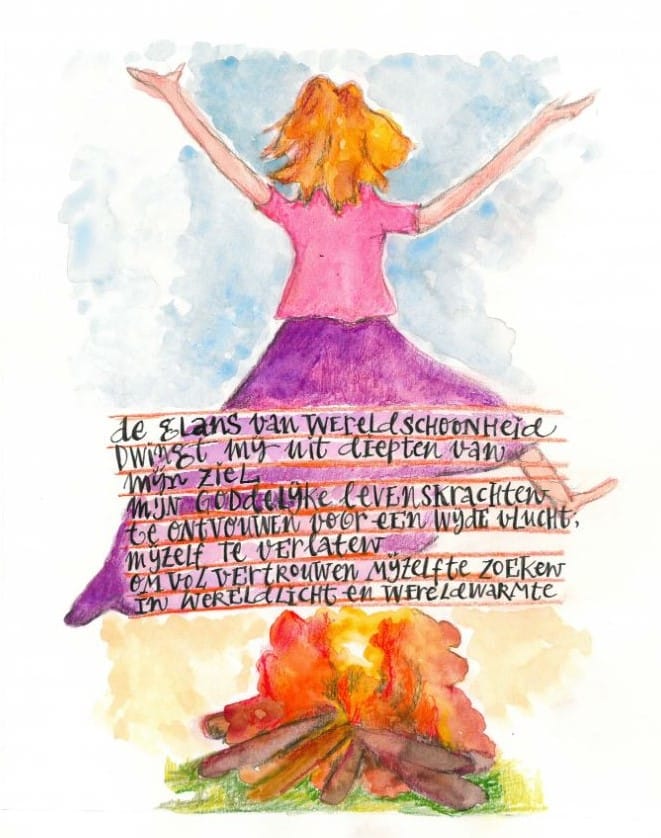 de glans van wereldschoonheid
Dwingt mij uit diepten van
mijn ziel
mijn Goddelijke levenskrachten
te ontvouwen voor een wijde vlucht;
mijzelf te verlaten
om vol vertrouwen mijzelf te zoeken
in wereldlicht en wereldwarmte